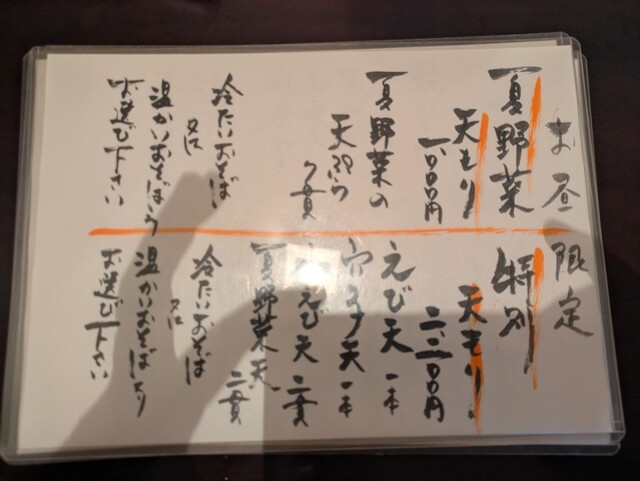 お昼限定
夏野菜
天もり
夏野菜の
天ぷら
7貫
冷たいおそば
又は
温かいおそばより
お選び下さい
特別
天もり
えび天 一本
穴子天 一本
えび天 二貫
夏野菜天 二貫
冷たいおそば
又は
温かいおそばより
お選び下さい